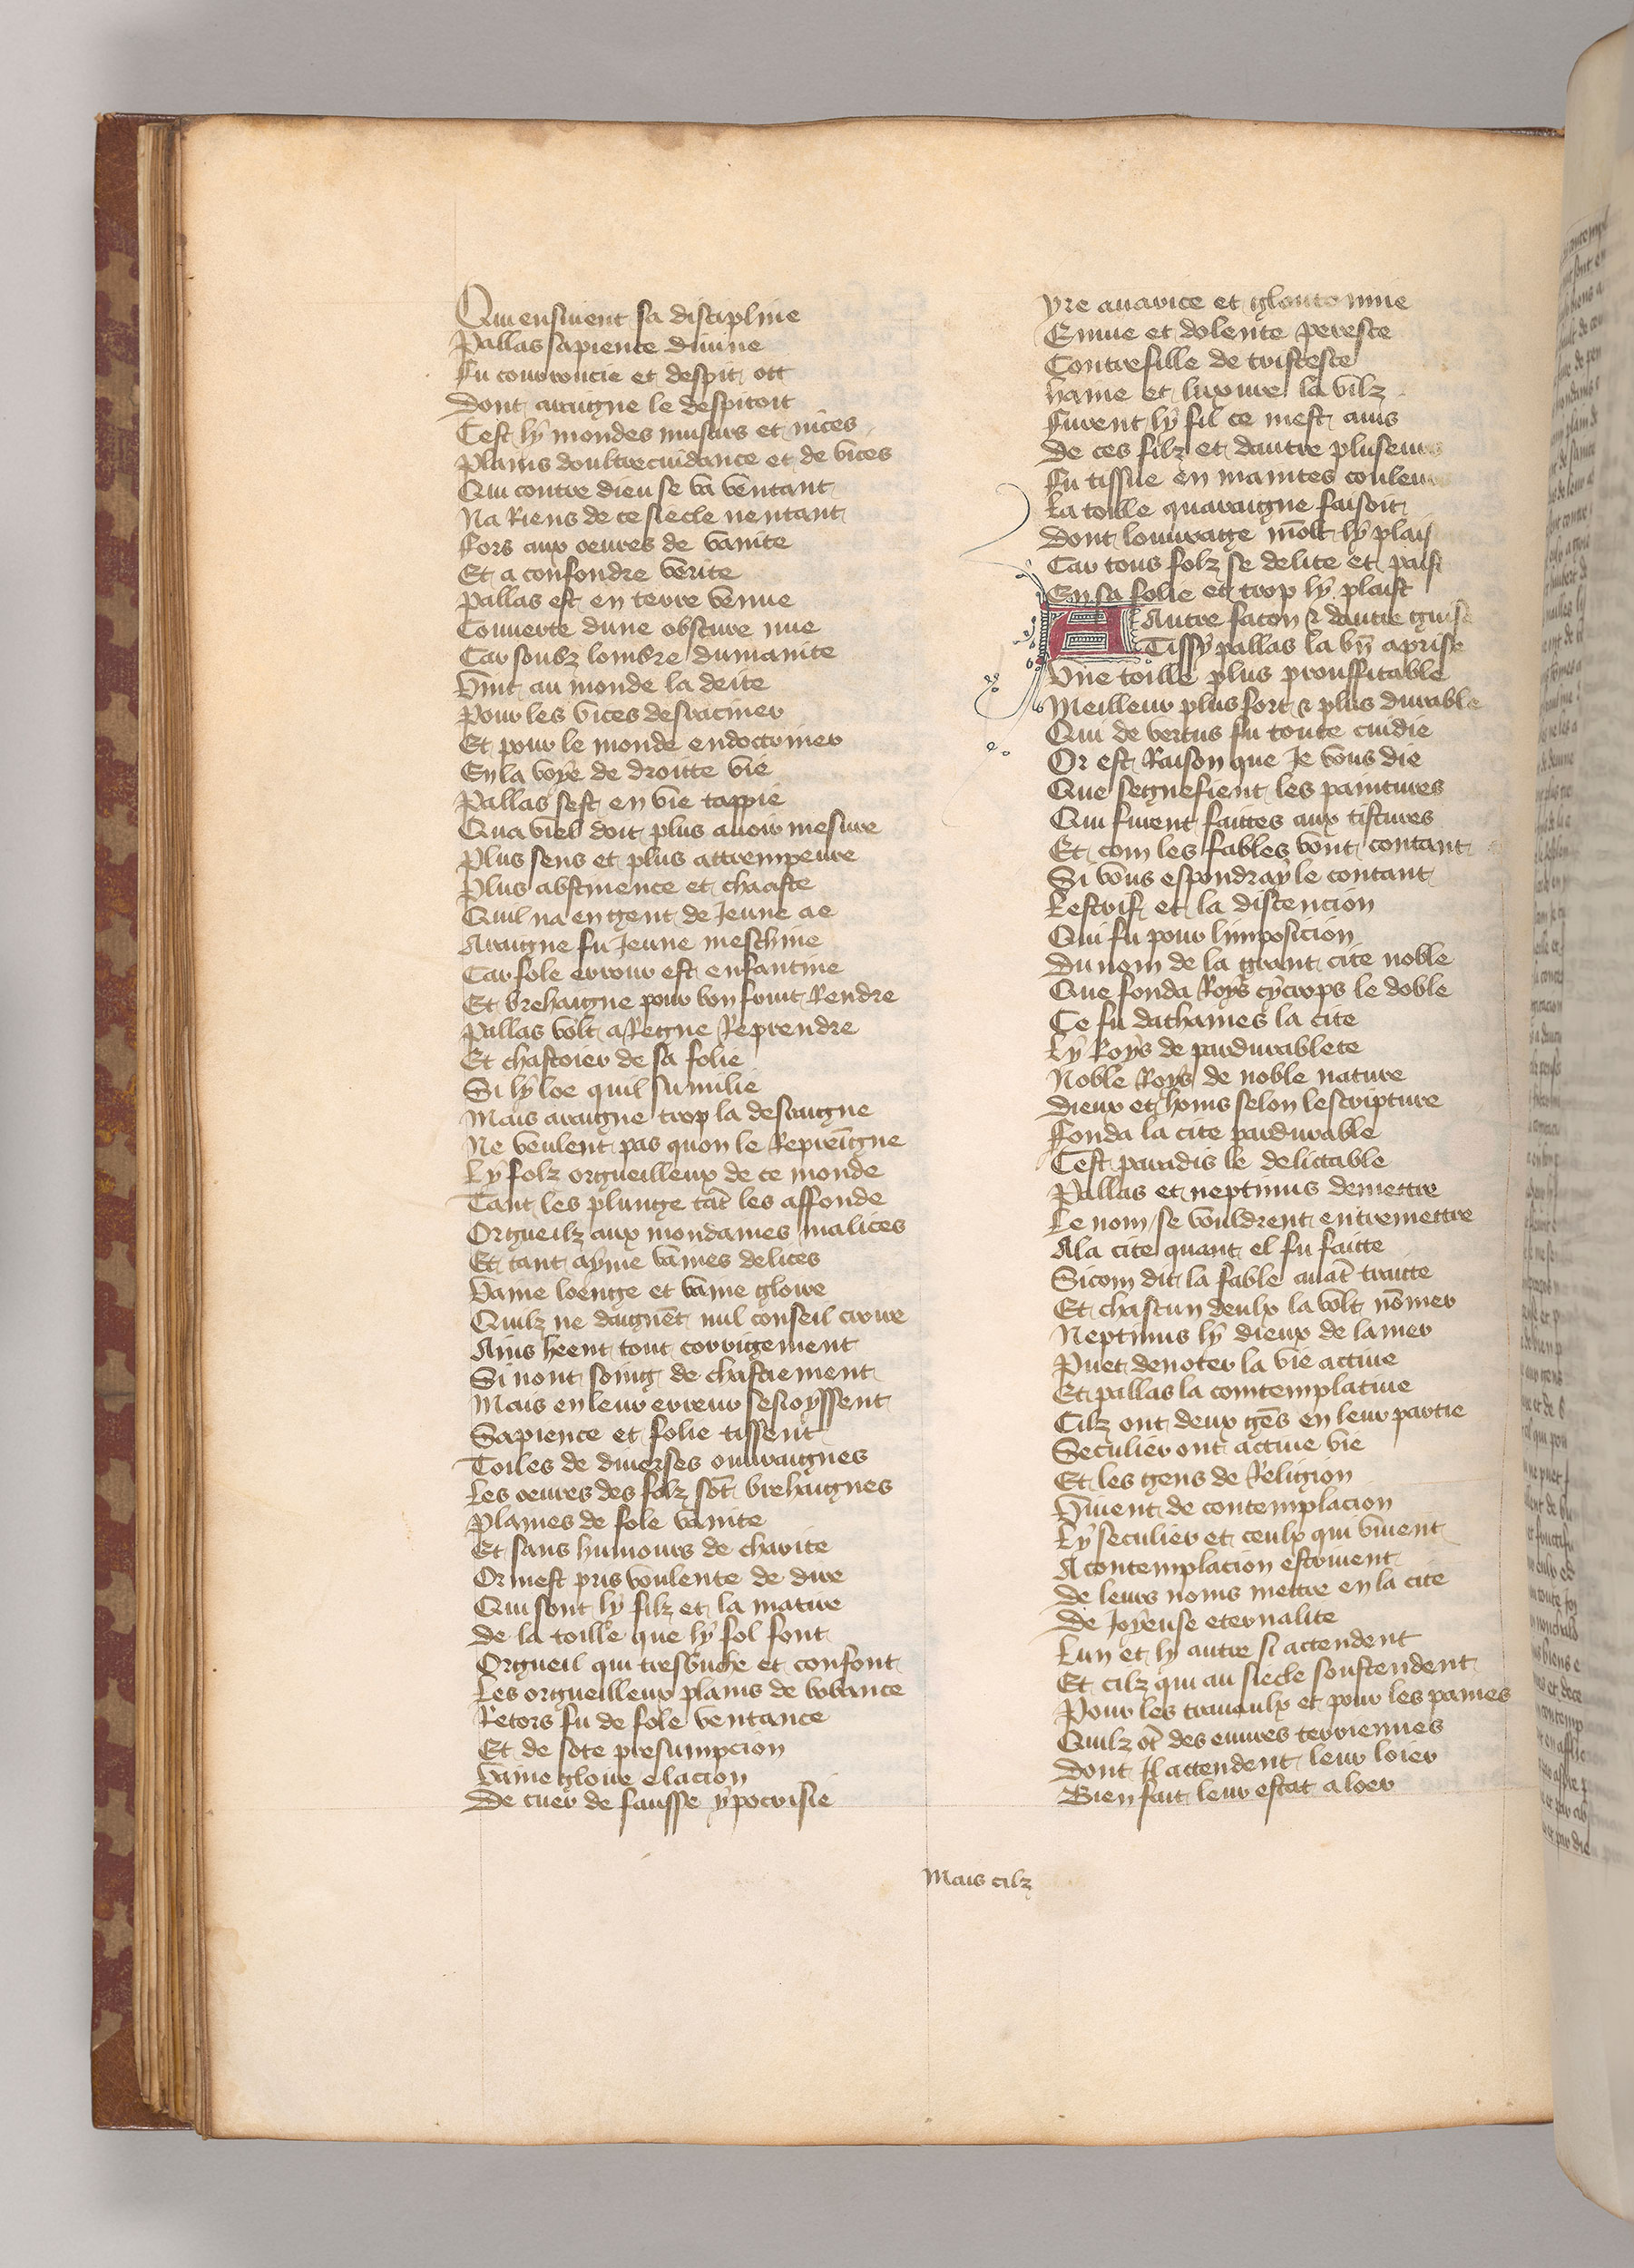 Qui ensiuent sa discipline
Pallas sapience diuine
Fu courroucie et despit ott
Dont araigne le despitoit
Cest ly mondes musars et nices
Plains doultrecuidance et de vices
Qui contre dieu se va ventant
Na Riens de ce siecle nentant
Fors aux oeures de vanite
Et a confondre verite
Pallas est en terre venue
Couuerte dune obscure nue
Car soubz lombre dumanite
Vint au monde la deite
Pour les vices desraciner
Et pour le monde endoctriner
En la voye de droitte vie
Pallas sest en vie tappie
Qua viel doit plus auoir mesure
Plus sens et plus attrempeure
Plus abstinence et chaaste
Quil na en gent de Jeune ae
Araigne fu Jeune meschine
Car fole errour est enfantine
Et brehaigne pour bon fruit Rendre
Pallas volt a Regne Reprendre
Et chastoier de sa folie
Si ly loe quil sumilie
Mais araigne trop la desdaigne
Ne veulent pas quon le Repreigne
Ly folz orgueilleux de ce monde
Tant les plunge tāt les affonde
Orgueilz aux mondaines malices
Et tant ayme vaines delices
Vaine loenge et vaine gloire
Quilz ne daignēt nul conseil croire
Ains heent tout corrigement
Si nont soing de chastiement
Mais en leur erreur sesioyssent
Sapience et folie tissent
Toiles de diuerses ouuraignes
Les oeures des folz sōt brehaignes
Plaines de fole vanite
Et sans humours de charite
Or mest pris voulente de dire
Qui sont ly filz et la matire
De la toille que ly fol font
Orgueil qui tresbuche et confont
Les orgueilleux plains de bobance
Retors fu de fole ventance
Et de sote presumpcion
Vaine gloire elacion
De cuer de fausse ypocrisie
Yre auarice et gloutonnie
Enuie et dolente peresce
Contrefille de tristesce
Haine et luxure la vilz
Furent ly fil ce mest auis
De ces filz et dautre pluseurs
Fu tissue en maintes couleurs
La toille quaraigne faisoit
Dont louurage mōlt ly plais
Car tous folz se delite et paist
En sa folie et trop ly plaist
A Autre facon & dautre guise
Tissy pallas la bn̄ aprise
Vne toille plus prouffitable
Meilleur plus fort & plus durable
Qui de vertus fu toute cuidie
Or est Raison que Je vous die
Que segnefient les paintures
Qui furent faittes aux tistures
Et com les fables vont contant
Si vous espondray le contant
Lestrif et la discencion
Qui fu pour limposicion
Du nom de la grant cite noble
Que fonda Roys cycrops le doble
Ce fu dathaines la cite
Ly Roys de pardurablete
Noble Roys de noble nature
Dieux et homs selon lescripture
Fonda la cite pardurable
Cest paradis le delictable
Pallas et neptunus demettre
Le nom se vouldrent entremettre
A la cite quant el fu faitte
Si com dit la fable auāt traitte
Et chascun deulx la volt nōmer
Neptunus ly dieux de la mer
Puet denoter la vie actiue
Et pallas la comtemplatiue
Cilz ont deux gēs en leur partie
Seculier ont actiue vie
Et les gens de Religion
Viuent de contemplacion
Ly seculier et ceulx qui viuent
A contemplacion estriuent
De leurs noms mettre en la cite
De Joyeuse eternalite
Lun et ly autre si attendent
Et cilz qui au siecle soustendent
Pour les trauaulx et pour les paines
Quilz ōt des euures terriennes
Dont Il attendent leur loier
Bien fait leur estat a loer
Mais cilz